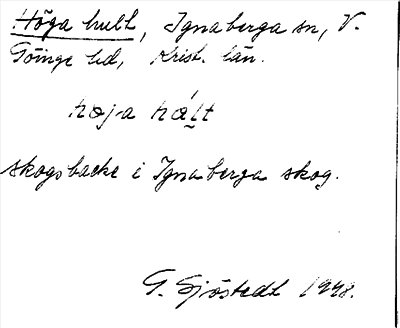 Höga hult, Ignaberga sn, V.
Göinge hd, Krist. län.
hoja hált
skogsbacke i Ignaberga skog.
G. Sjöstedt 1948.